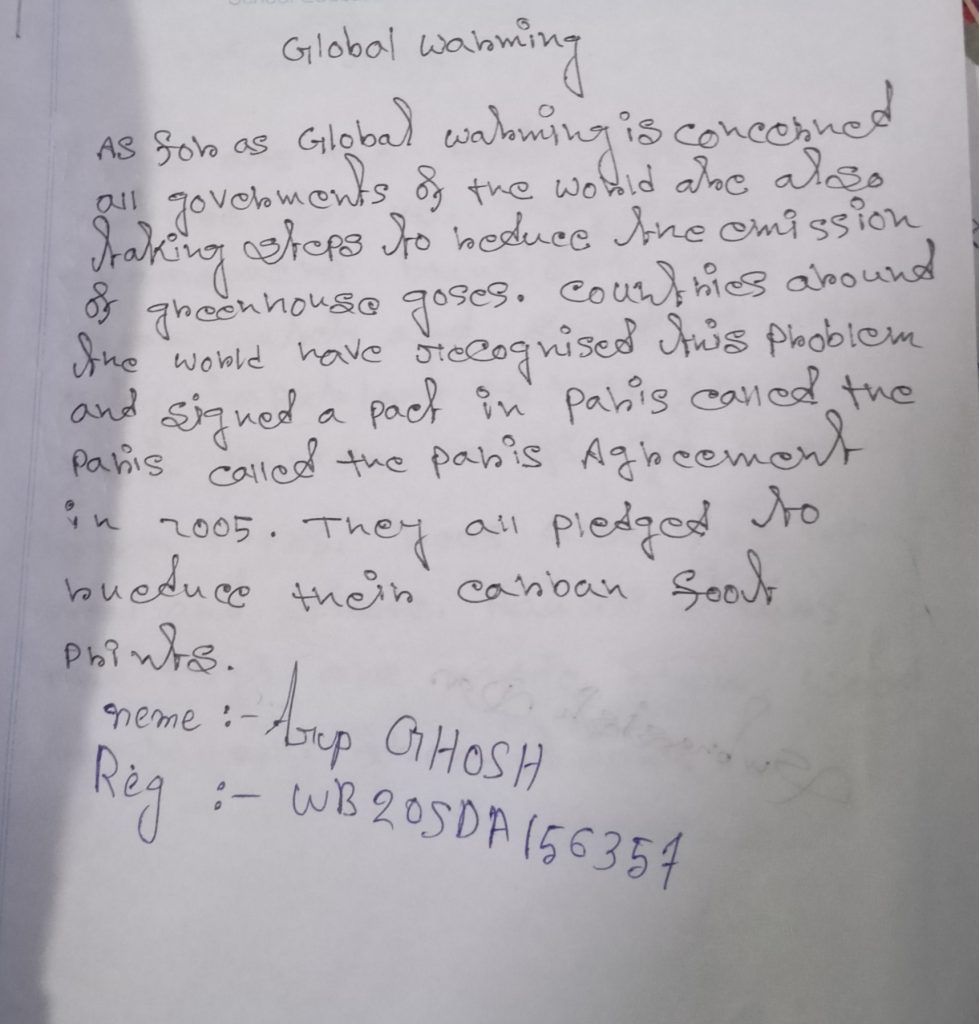 Global warming
AS for as Global warming is concerned
all goverments of the world are also
taking steps to reduce the emission
of greenhouse goses. countries around
the world have recognised this problem
and signed a pact in paris called the
paris called the paris Agreement
in 2005. They all pledged to
rueduce their carban foot
prints.
neme :- Arup GHOSH
Reg :- WB20SDA156357